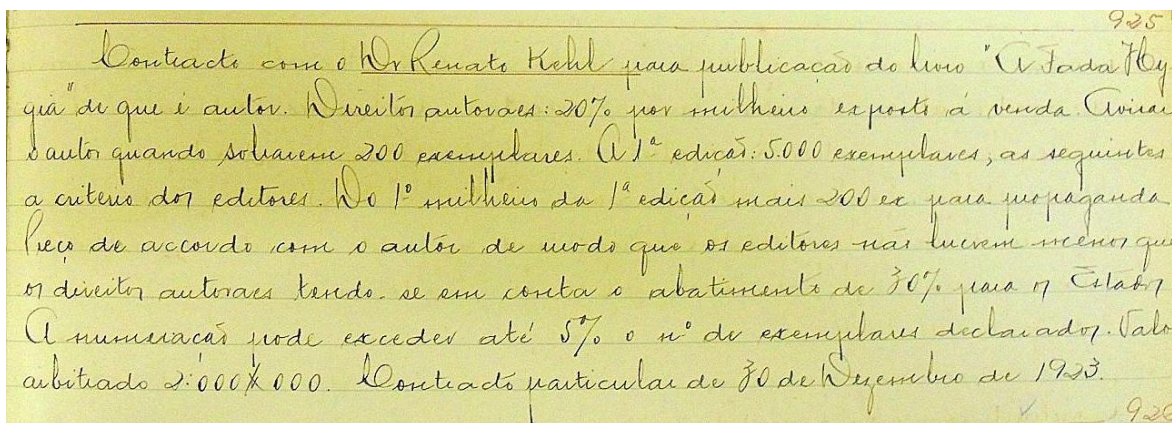 925
Contracto com o Dr Renato Kehl para publicação do livro "A Fada Hy
gia" de que é autor. Direitos autoraes: 20% por milheiro exposto á venda. Avisar
o autor quando sobrarem 200 exemplares. A 1ª edição: 5.000 exemplares, as seguintes
a criterio dos editores. Do 1º milheiro da 1ª edição mais 200 ex para propaganda
Preço de accordo com o autor de modo que os editores não lucrem menos que
os direitos autoraes tendo-se em conta o abatimento de 30% para os Estados
A numeração pode exceder até 5% o nº de exemplares declarados. Valo
arbitrado 2:000$000. Contracto particular de 30 de Dezembro de 1923.
926